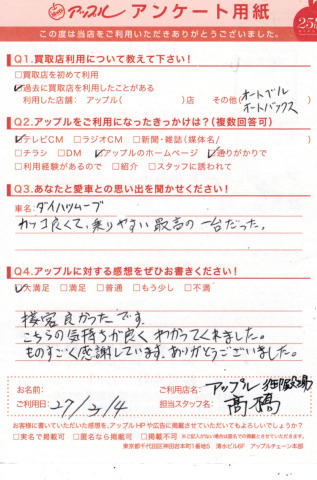 アップル アンケート用紙
この度は当店をご利用いただきありがとうございました。
Q1.買取店利用について教えて下さい!
□買取店を初めて利用
☑過去に買取店を利用したことがある
利用した店舗: アップル( )店 その他(オートベル
オートバックス
Q2.アップルをご利用になったきっかけは?(複数回答可)
☑テレビCM □ラジオCM □新聞・雑誌(媒体名/ )
□チラシ □DM ☑アップルのホームページ ☑通りがかりで
□利用経験があるので □紹介 □スタッフに誘われて
Q3.あなたと愛車との思い出を聞かせください!
車名: ダイハツムーブ
カッコ良くて、乗りやすい最高の一台だった。
Q4.アップルに対する感想をぜひお書きください!
☑大満足 □満足 □普通 □もう少し □不満
接客良かったです。
こちらの気持ちが良くわかってくれました。
ものすごく感謝しています。ありがとうございました。
お名前:
ご利用店名: アップル 御殿場
ご利用日: 27/3/4
担当スタッフ名: 髙橋
お客様に書いていただいた感想を、アップルHPや広告に掲載させていただいてもよろしいでしょうか?
□実名で掲載可 □匿名なら掲載可 □掲載不可 ※ご記入がない場合は匿名での掲載とさせていただきます。
東京都千代田区神田岩本町1番地5 清水ビル6F アップルチェーン本部